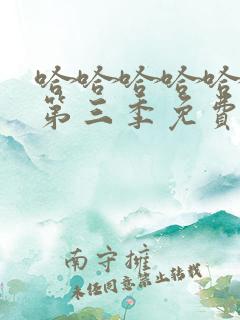 哈哈哈哈哈
第三季免費
南守擁
未经同意禁止转载